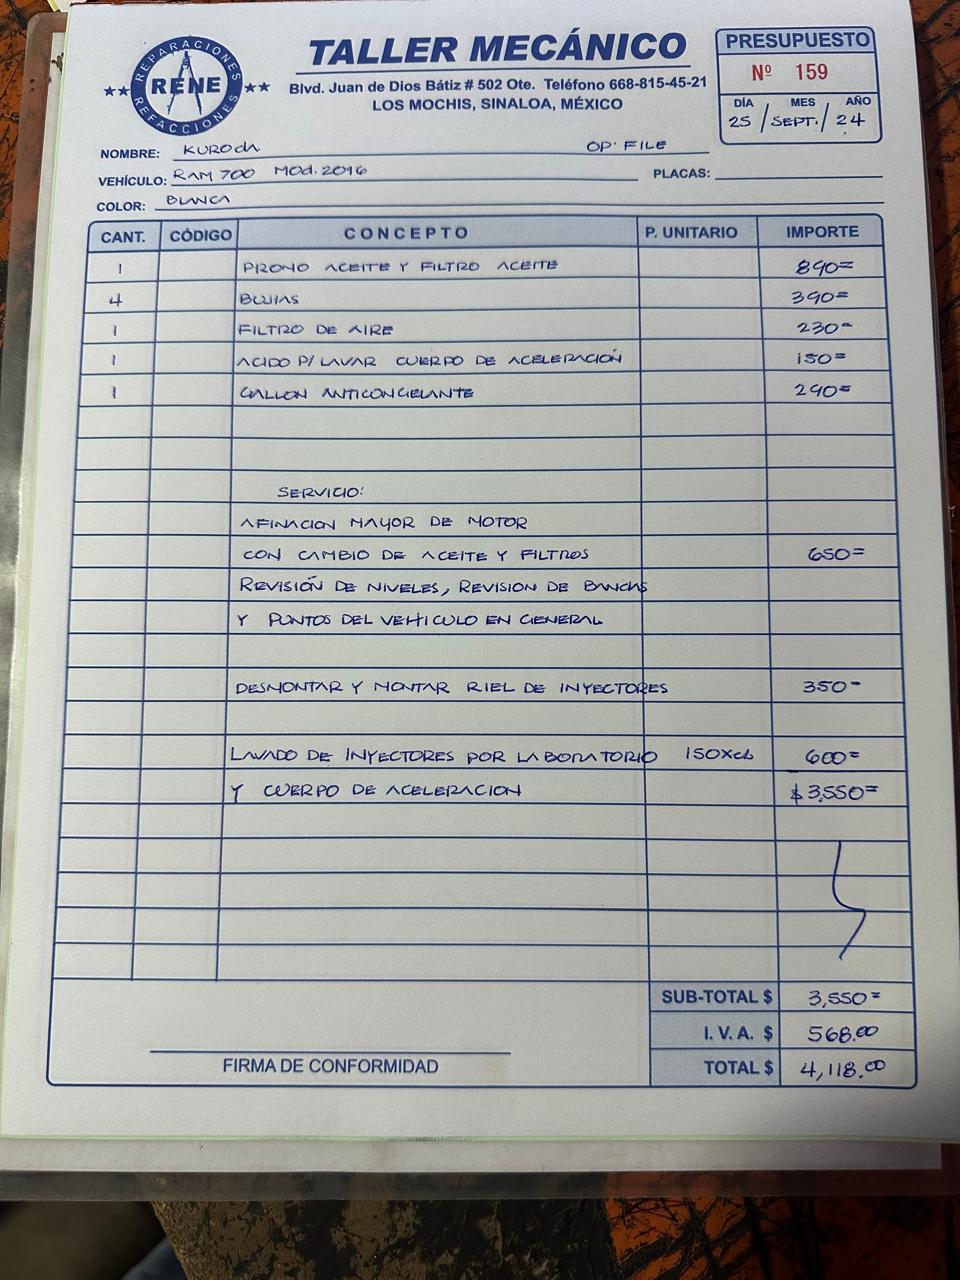 REPARACIONES
RENE
REFACCIONES
TALLER MECÁNICO
Blvd. Juan de Dios Bátiz # 502 Ote. Teléfono 668-815-45-21
LOS MOCHIS, SINALOA, MÉXICO
PRESUPUESTO
Nº 159
DÍA MES AÑO
25 / SEPT. / 24
NOMBRE: KURODA OP. FILE
VEHÍCULO: RAM 700 MOD. 2016 PLACAS:
COLOR: BLANCA
CANT. CÓDIGO CONCEPTO P. UNITARIO IMPORTE
1 PROMO ACEITE Y FILTRO ACEITE 890=
4 BUJIAS 390=
1 FILTRO DE AIRE 230=
1 ACIDO P/ LAVAR CUERPO DE ACELERACIÓN 150=
1 GALLON ANTICONGELANTE 290=
SERVICIO:
AFINACION MAYOR DE MOTOR
CON CAMBIO DE ACEITE Y FILTROS 650=
REVISIÓN DE NIVELES, REVISION DE BANDAS
Y PUNTOS DEL VEHICULO EN GENERAL
DESMONTAR Y MONTAR RIEL DE INYECTORES 350=
LAVADO DE INYECTORES POR LABORATORIO 150XC/ 600=
Y CUERPO DE ACELERACION $3,550=
SUB-TOTAL $ 3,550=
I. V. A. $ 568.00
TOTAL $ 4,118.00
FIRMA DE CONFORMIDAD